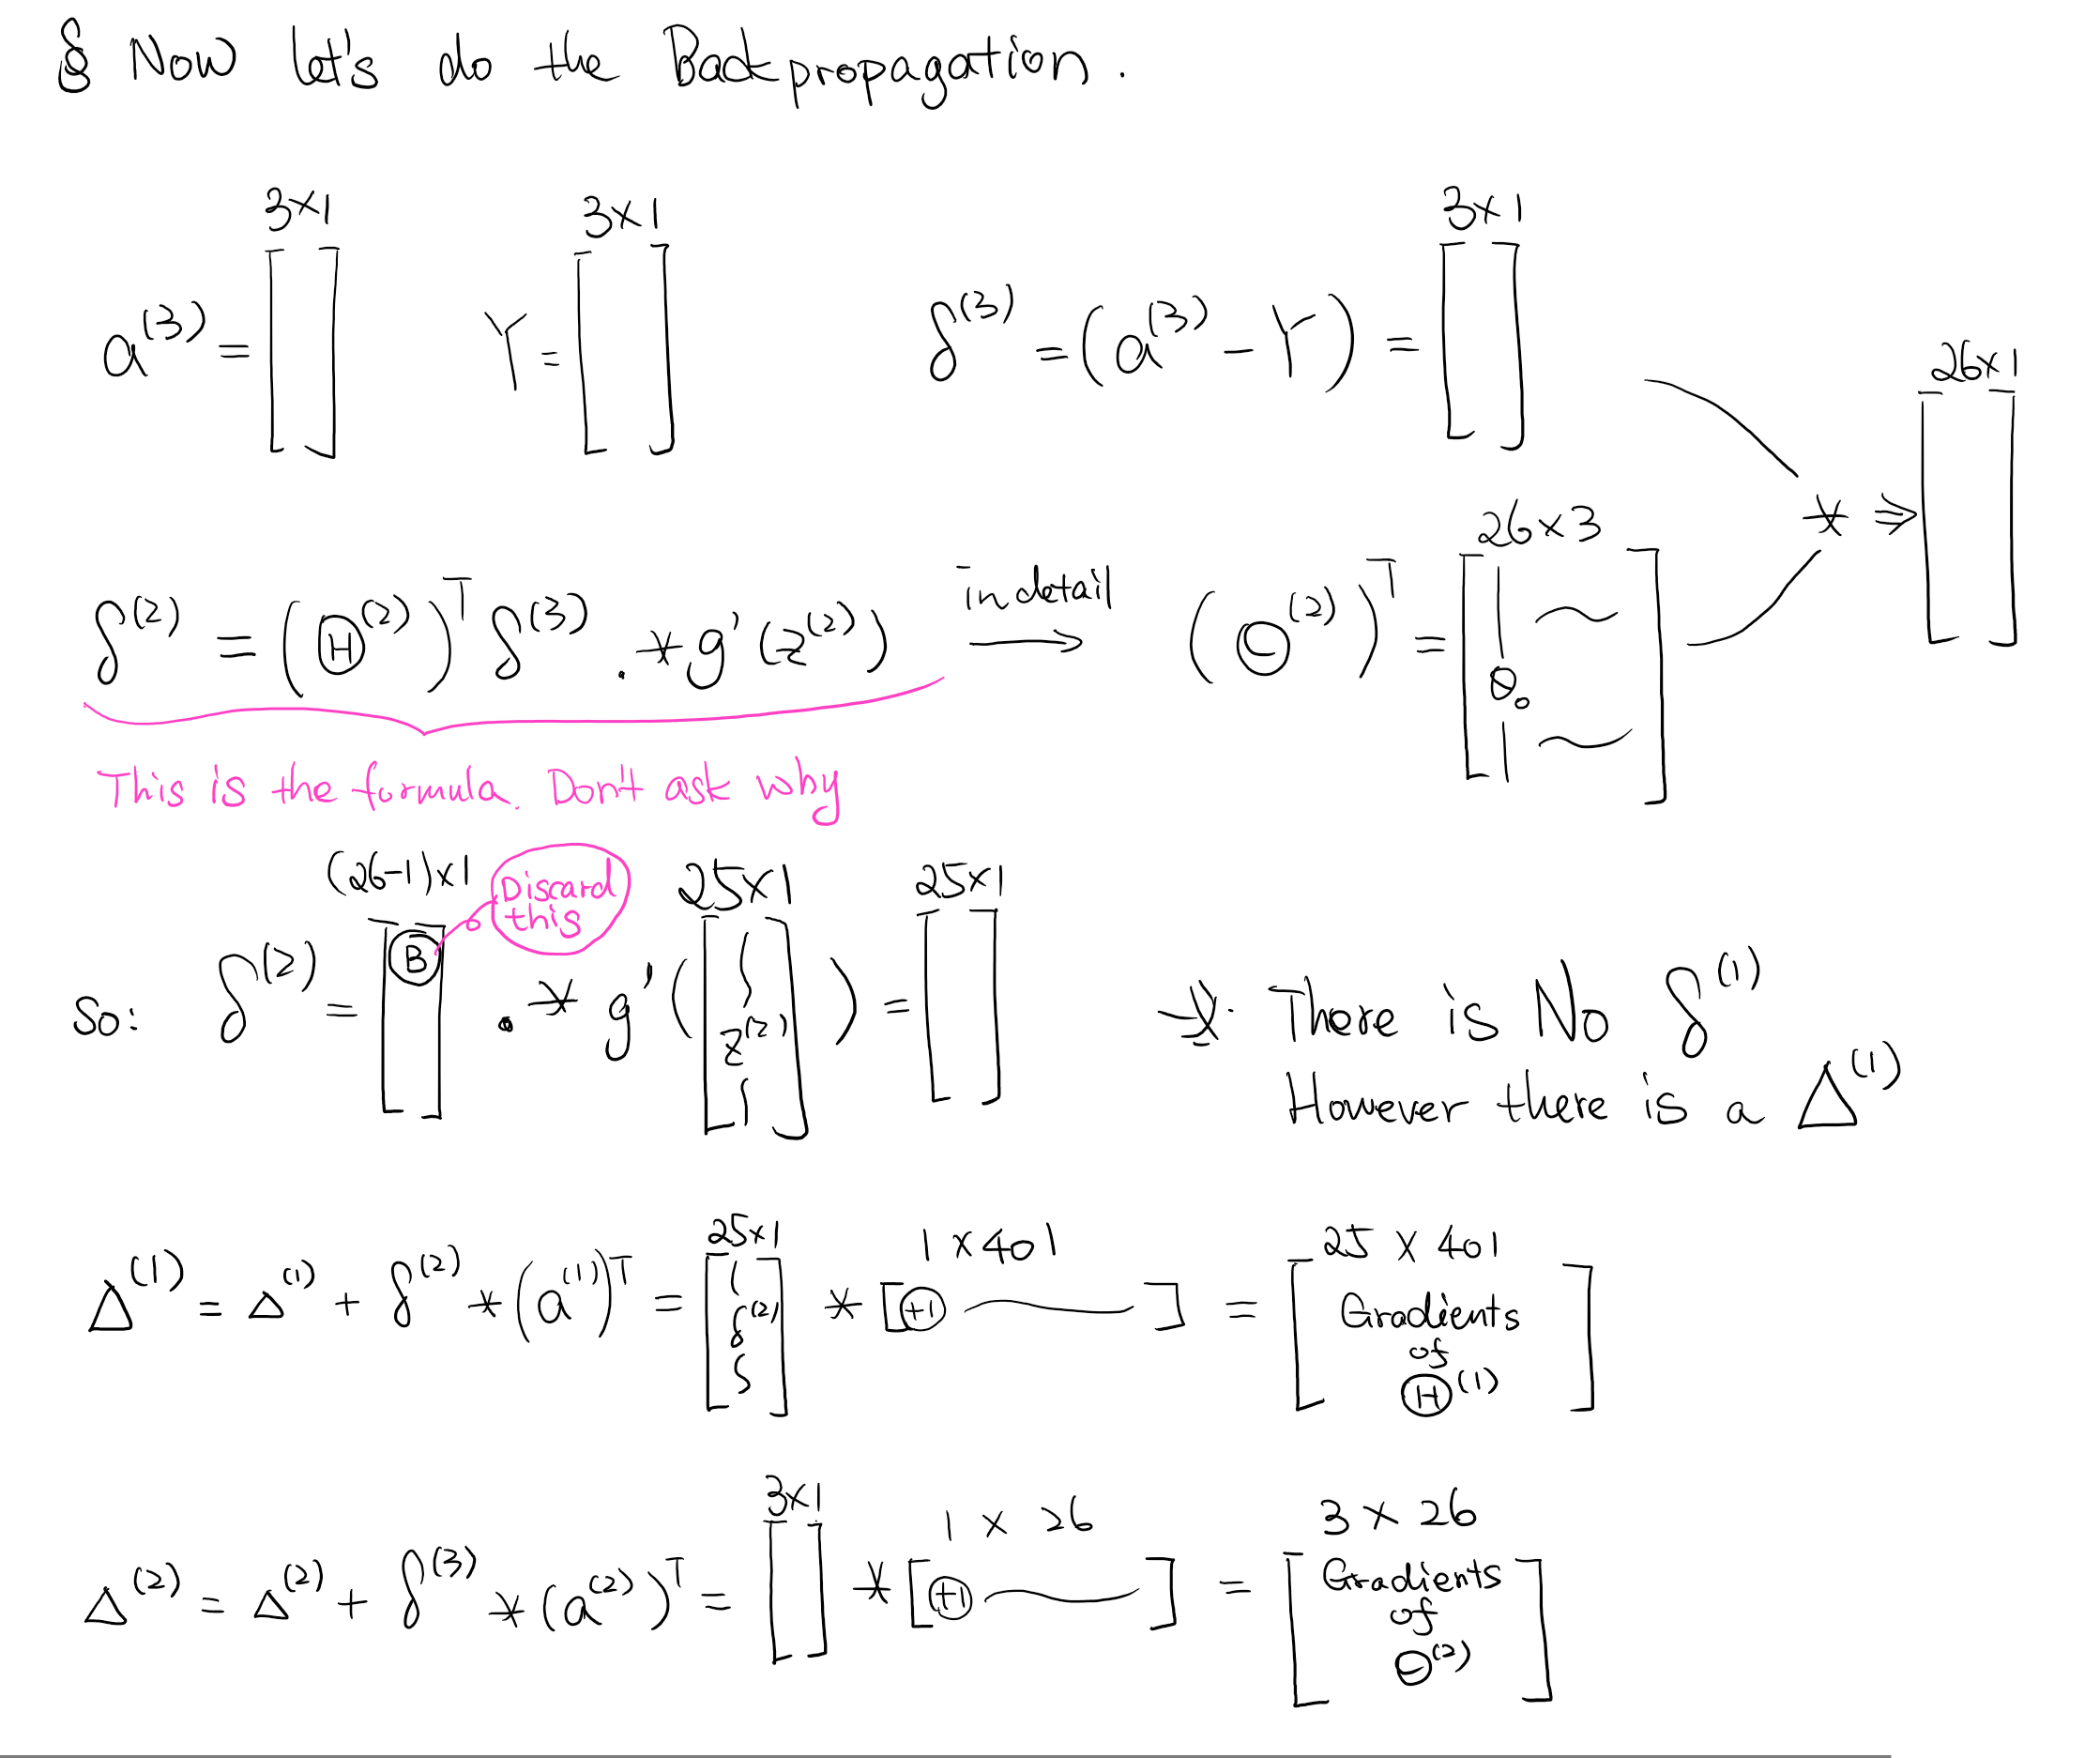 § Now let's do the Backpropagation.
3×1 3×1 3×1
a⁽³⁾ = [ ] Y = [ ] δ⁽³⁾ = (a⁽³⁾ - Y) = [ ]
26×1
* ⇒ [ ]
26×3
δ⁽²⁾ = (Θ⁽²⁾)ᵀ δ⁽³⁾ .* g'(z⁽²⁾) in detail → (Θ⁽²⁾)ᵀ = [ θ₀ ]
This is the formula. Don't ask why
(26-1)×1 Discard this 25×1 25×1
So: δ⁽²⁾ = [ B ] .* g'([ z⁽²⁾ ]) = [ ]
* There is No δ⁽¹⁾
However there is a Δ⁽¹⁾
25×1 1×401 25×401
Δ⁽¹⁾ = Δ⁽¹⁾ + δ⁽²⁾ * (a⁽¹⁾)ᵀ = [ δ⁽²⁾ ] * [ +1 ] = [ Gradients of Θ⁽¹⁾ ]
3×1 1×26 3×26
Δ⁽²⁾ = Δ⁽²⁾ + δ⁽³⁾ * (a⁽²⁾)ᵀ = [ ] * [ +1 ] = [ Gradients of Θ⁽²⁾ ]